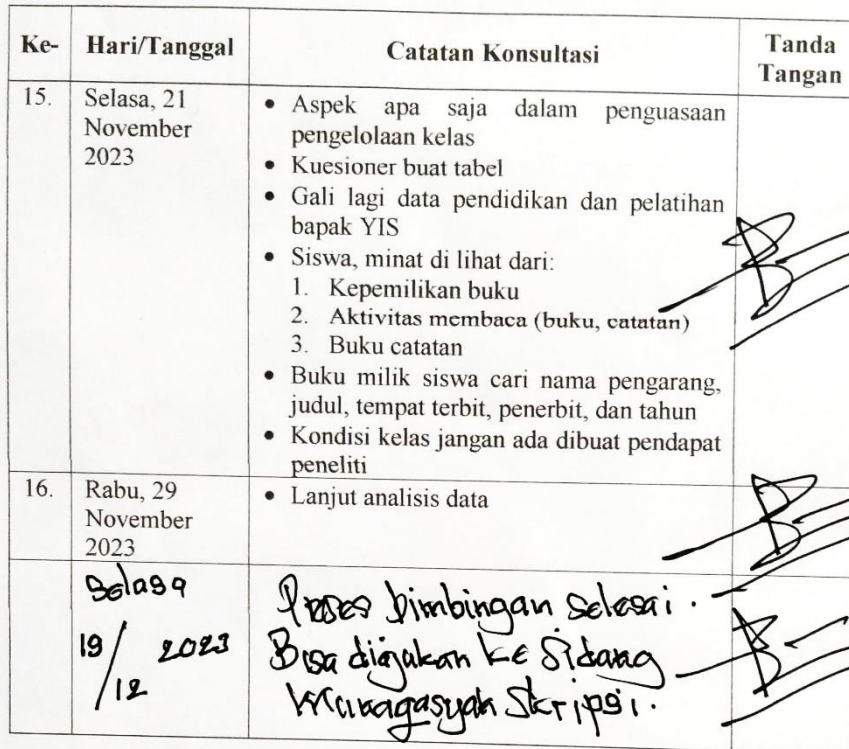 Ke- Hari/Tanggal Catatan Konsultasi Tanda Tangan
15. Selasa, 21 November 2023
• Aspek apa saja dalam penguasaan
pengelolaan kelas
• Kuesioner buat tabel
• Gali lagi data pendidikan dan pelatihan
bapak YIS
• Siswa, minat di lihat dari:
1. Kepemilikan buku
2. Aktivitas membaca (buku, catatan)
3. Buku catatan
• Buku milik siswa cari nama pengarang,
judul, tempat terbit, penerbit, dan tahun
• Kondisi kelas jangan ada dibuat pendapat
peneliti
16. Rabu, 29 November 2023
• Lanjut analisis data
Selasa
19/12 2023
Proses bimbingan selesai.
Bisa diajukan ke Sidang
Munaqasyah Skripsi.